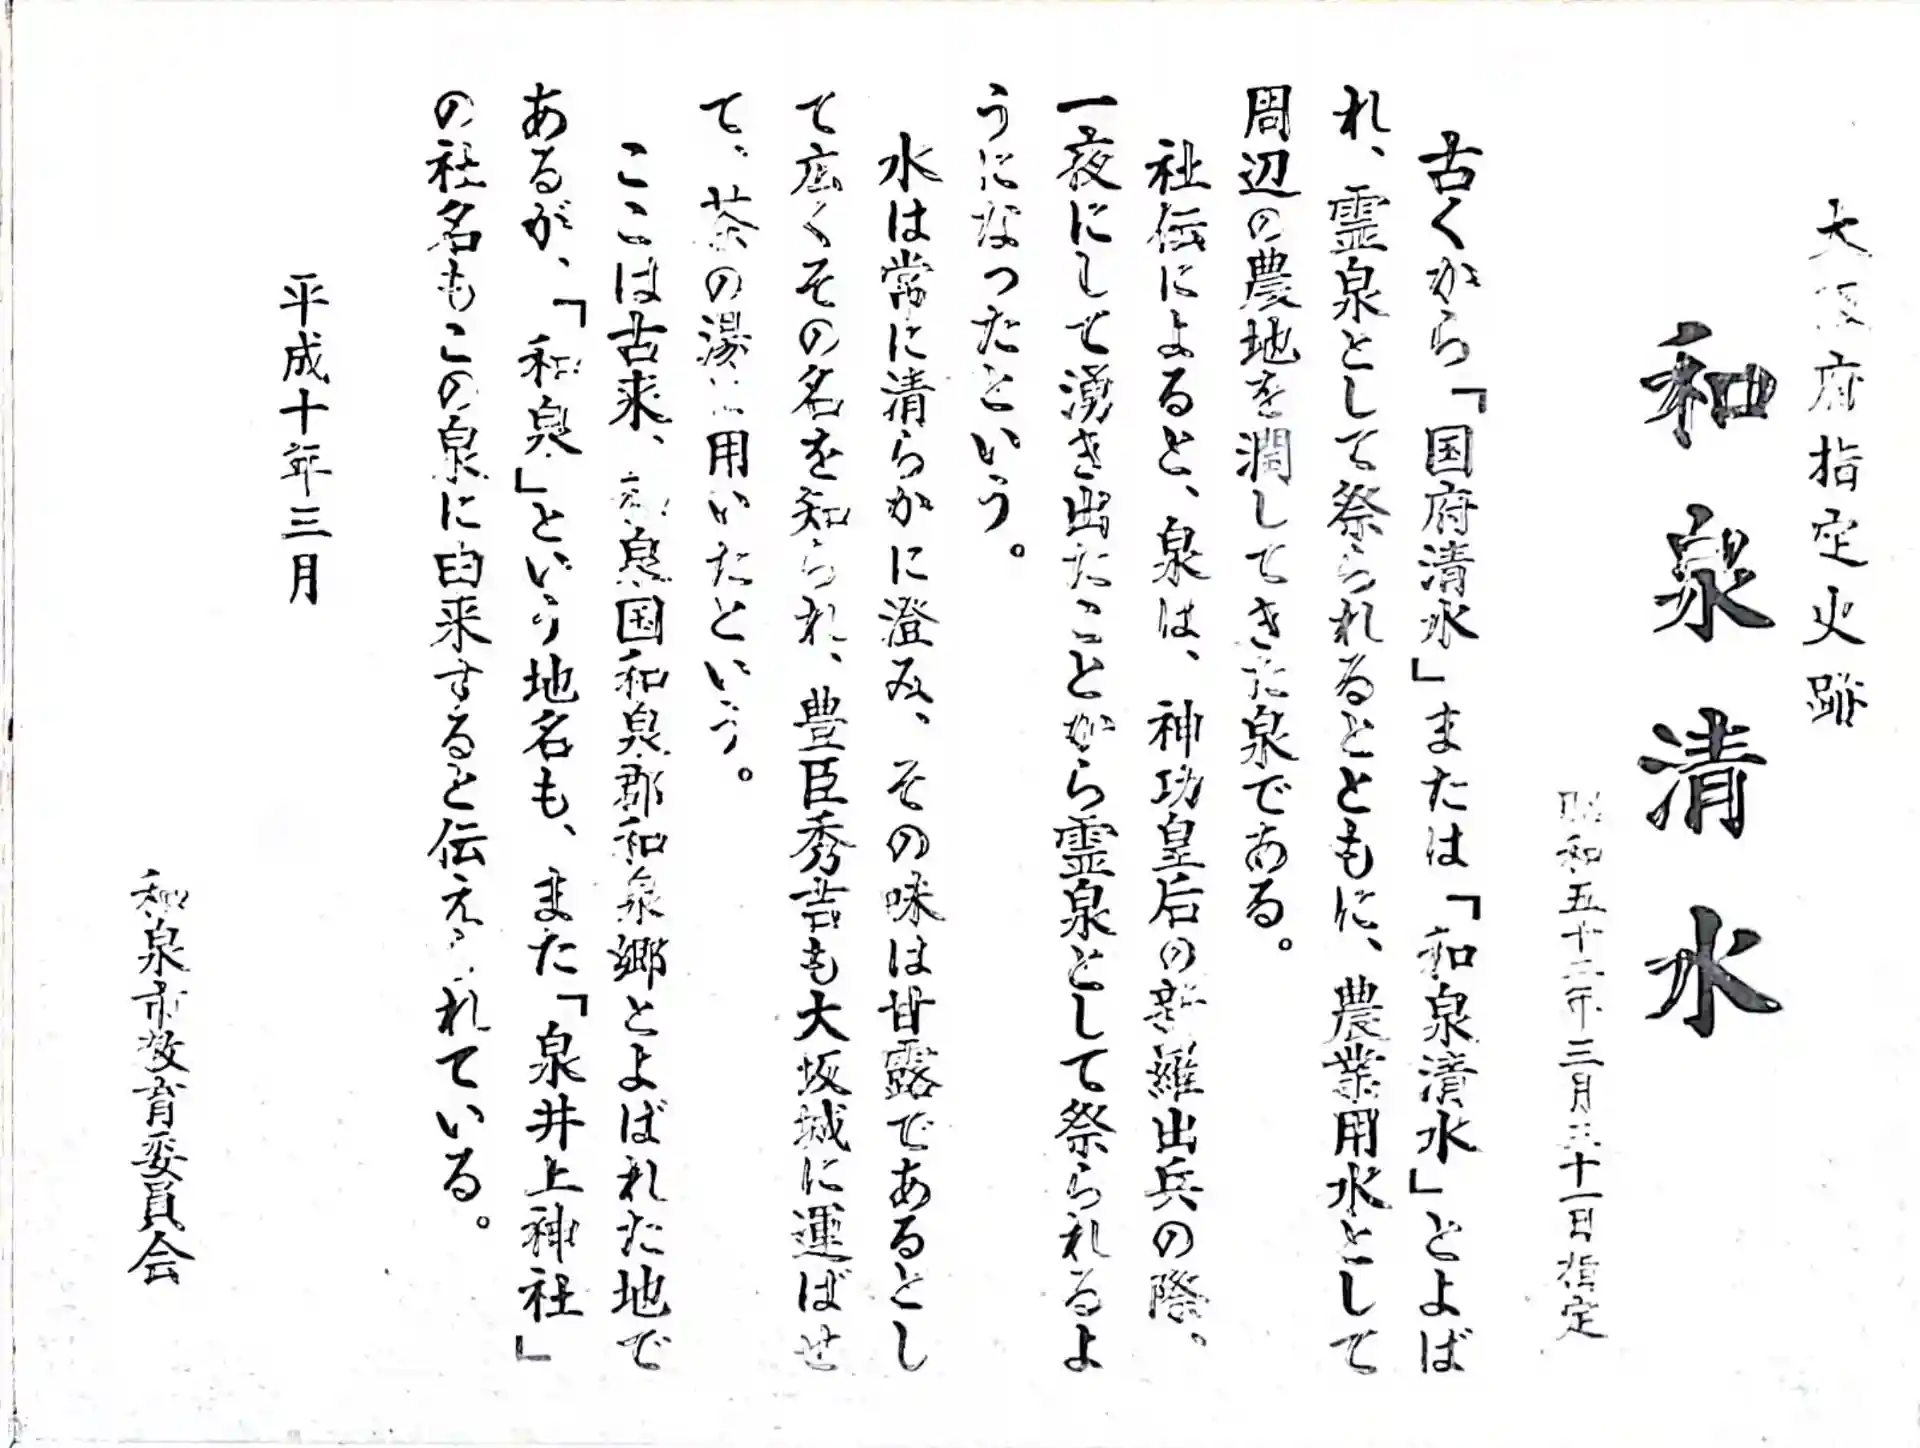 大阪府指定史跡
和泉清水
昭和五十二年三月三十一日指定
古くから「国府清水」または「和泉清水」とよば
れ、霊泉として祭られるとともに、農業用水として
周辺の農地を潤してきた泉である。
社伝によると、泉は、神功皇后の新羅出兵の際、
一夜にして湧き出たことから霊泉として祭られるよ
うになったという。
水は常に清らかに澄み、その味は甘露であるとし
て広くその名を知られ、豊臣秀吉も大坂城に運ばせ
て、茶の湯に用いたという。
ここは古来、和泉国和泉郡和泉郷とよばれた地で
あるが、「和泉」という地名も、また「泉井上神社」
の社名もこの泉に由来すると伝えられている。
平成十年三月
和泉市教育委員会